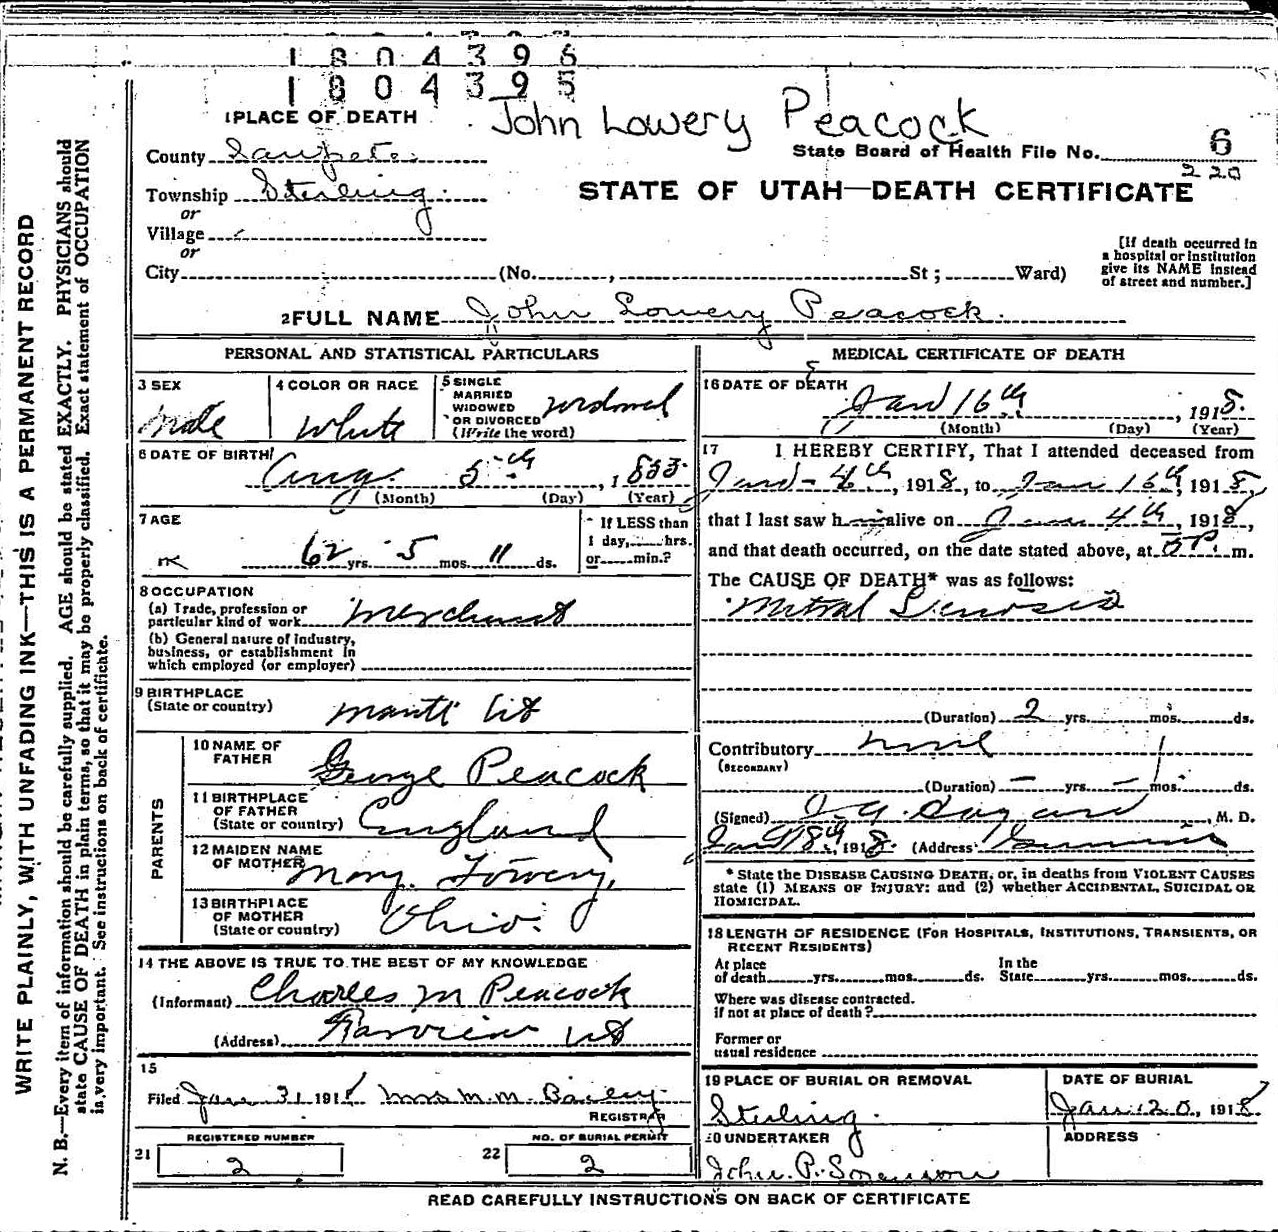 1804396
1804395
John Lowery Peacock
1 PLACE OF DEATH
County Sanpete
State Board of Health File No. 6
220
Township Sterling
STATE OF UTAH—DEATH CERTIFICATE
or
Village
or
City (No. , St ; Ward)
[If death occurred in
a hospital or institution
give its NAME instead
of street and number.]
2 FULL NAME John Lowery Peacock
PERSONAL AND STATISTICAL PARTICULARS
3 SEX
Male
4 COLOR OR RACE
White
5 SINGLE
MARRIED
WIDOWED
OR DIVORCED
(Write the word)
widowed
6 DATE OF BIRTH
Aug. 5th, 1855
(Month) (Day) (Year)
7 AGE
62 yrs. 5 mos. 11 ds.
If LESS than
1 day, hrs.
or min.?
8 OCCUPATION
(a) Trade, profession or
particular kind of work Merchant
(b) General nature of industry,
business, or establishment in
which employed (or employer)
9 BIRTHPLACE
(State or country)
Manti Ut
PARENTS
10 NAME OF
FATHER
George Peacock
11 BIRTHPLACE
OF FATHER
(State or country)
England
12 MAIDEN NAME
OF MOTHER
Mary Lowery
13 BIRTHPLACE
OF MOTHER
(State or country)
Ohio.
14 THE ABOVE IS TRUE TO THE BEST OF MY KNOWLEDGE
(Informant) Charles M Peacock
(Address) Ut
15
Filed Jan 31 1918 Mrs M. M. Bailey
REGISTRAR
REGISTERED NUMBER
21 2
NO. OF BURIAL PERMIT
22 2
MEDICAL CERTIFICATE OF DEATH
16 DATE OF DEATH
Jan 16th, 1918.
(Month) (Day) (Year)
17 I HEREBY CERTIFY, That I attended deceased from
Jan - 4th, 1918, to Jan 16th, 1918,
that I last saw h alive on Jan 4th, 1918,
and that death occurred, on the date stated above, at P. m.
The CAUSE OF DEATH* was as follows:
Mitral Stenosis
(Duration) 2 yrs. mos. ds.
Contributory none
(SECONDARY)
(Duration) — yrs. — mos. ds.
(Signed) , M. D.
Jan 18th, 1918. (Address)
* State the DISEASE CAUSING DEATH, or, in deaths from VIOLENT CAUSES
state (1) MEANS OF INJURY; and (2) whether ACCIDENTAL, SUICIDAL OR
HOMICIDAL.
18 LENGTH OF RESIDENCE (FOR HOSPITALS, INSTITUTIONS, TRANSIENTS, OR
RECENT RESIDENTS)
At place
of death yrs. mos. ds.
In the
State yrs. mos. ds.
Where was disease contracted.
if not at place of death?
Former or
usual residence
19 PLACE OF BURIAL OR REMOVAL
Sterling.
DATE OF BURIAL
Jan 20, 1918
20 UNDERTAKER
John. P. Sorenson
ADDRESS
READ CAREFULLY INSTRUCTIONS ON BACK OF CERTIFICATE
WRITE PLAINLY, WITH UNFADING INK—THIS IS A PERMANENT RECORD
N. B.—Every item of information should be carefully supplied. AGE should be stated EXACTLY. PHYSICIANS should
state CAUSE OF DEATH in plain terms, so that it may be properly classified. Exact statement of OCCUPATION
is very important. See instructions on back of certificate.